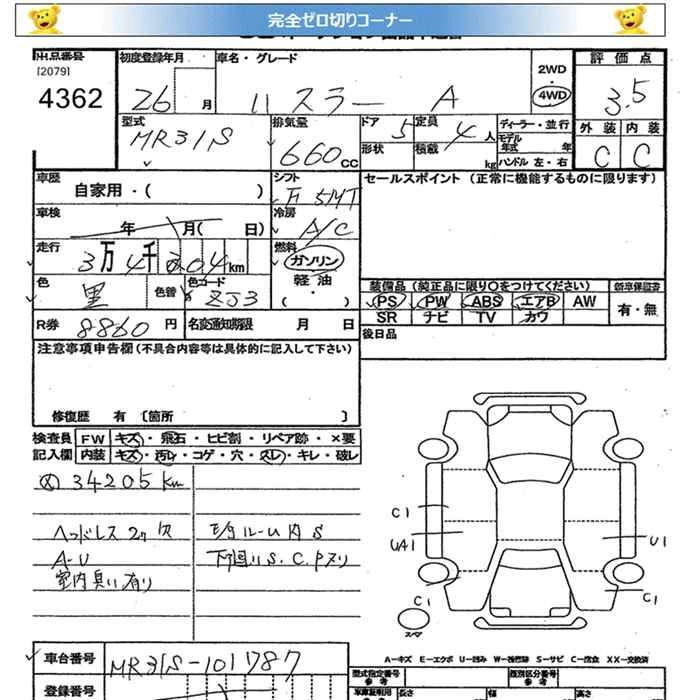 完全ゼロ切りコーナー
出品番号 初度登録年月 車名・グレード 2WD 評価点
[2079]
4362 26 月 ハスラー A 4WD 3.5
型式 排気量 ドア 定員 ディーラー・並行 外装 内装
MR31S 660cc 5 4人 モデル年式 年式 C C
形状 積載 kg ハンドル 左・右
車歴 シフト セールスポイント (正常に機能するものに限ります)
自家用・( ) F 5MT
車検 冷房
年 月( 日) A/C
走行 燃料
3万4千204km ガソリン
色 色替 色コード 軽油 装備品 (純正品に限り〇をつけてください) 新車保証書
黒 ZJ3 ・( ) PS PW ABS エアB AW 有・無
SR ナビ TV カワ
R券 8860円 名変通知期限 月 日 後日品
注意事項申告欄 (不具合内容等は具体的に記入して下さい)
修復歴 有 [箇所 ]
検査員 FW キズ・飛石・ヒビ割・リペア跡・×要
記入欄 内装 キズ・汚レ・コゲ・穴・スレ・キレ・破レ
34205km
ヘッドレス2ケ欠 モケルーム内S
A-U 下回りS.C.Pヌリ
室内臭い有り
C1
UA1 U1
C1 C1
スペア
A-キズ E-エクボ U-凹み W-補修跡 S-サビ C-腐食 XX-交換済
車台番号 MR31S-101787
型式指定番号 参考 類別区分番号 参考
登録番号 長さ 幅 高さ